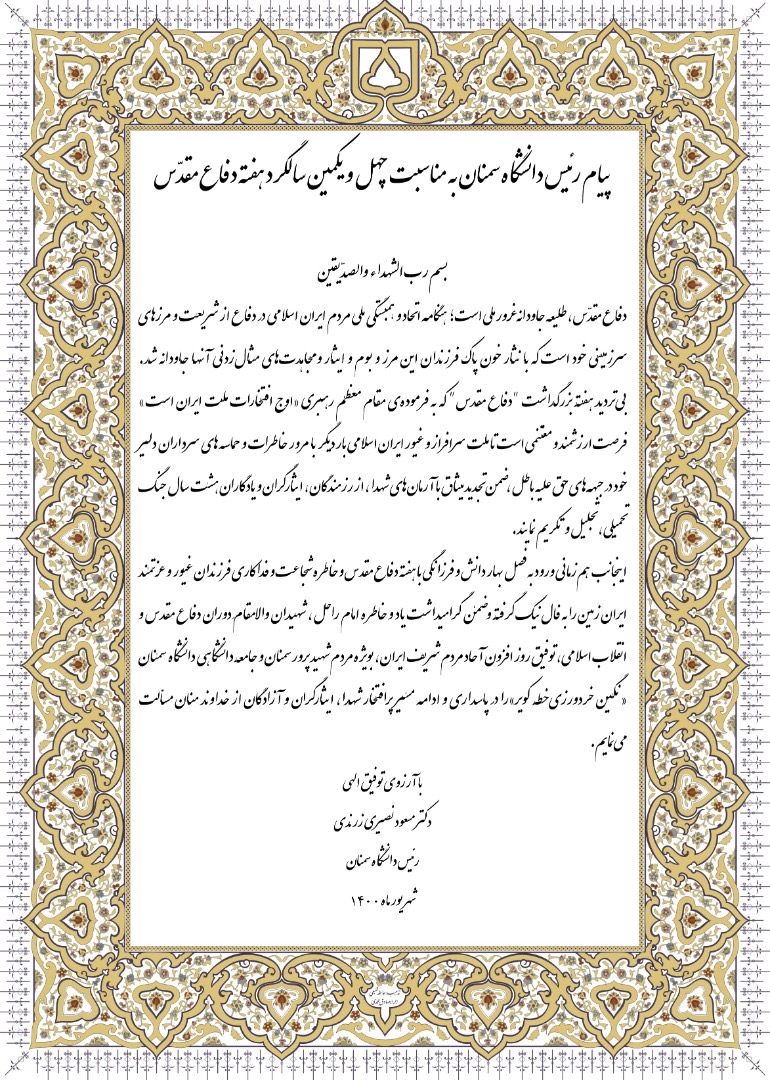 پیام رئیس دانشگاه سمنان به مناسبت چهل و یکمین سالگرد هفته دفاع مقدّس
بسم رب الشهداء والصدّیقین
دفاع مقدّس، طلیعه جاودانه غرور ملی است؛ هنگامه اتحاد و همبستگی ملی مردم ایران اسلامی در دفاع از شریعت و مرزهای
سرزمینی خود است که با نثار خون پاک فرزندان این مرز و بوم و ایثار و مجاهدت‌های مثال زدنی آنها جاودانه شد.
بی تردید هفته بزرگداشت "دفاع مقدس" که به فرموده‌ی مقام معظم رهبری «اوج افتخارات ملت ایران است»
فرصت ارزشمند و مغتنمی است تا ملت سرافراز و غیور ایران اسلامی بار دیگر با مرور خاطرات و حماسه های سرداران دلیر
خود در جبهه های حق علیه باطل، ضمن تجدید میثاق با آرمان های شهدا، از رزمندگان، ایثارگران و یادگاران هشت سال جنگ
تحمیلی، تجلیل و تکریم نمایند.
اینجانب هم زمانی ورود به فصل بهار دانش و فرزانگی با هفته دفاع مقدس و خاطره شجاعت و فداکاری فرزندان غیور و عزتمند
ایران زمین را به فال نیک گرفته و ضمن گرامیداشت یاد و خاطره امام راحل، شهیدان والامقام دوران دفاع مقدس و
انقلاب اسلامی، توفیق روز افزون آحاد مردم شریف ایران، بویژه مردم شهید پرور سمنان و جامعه دانشگاهی دانشگاه سمنان
«نگین خردورزی خطه کویر» را در پاسداری و ادامه مسیر پرافتخار شهدا، ایثارگران و آزادگان از خداوند منان مسألت
می نمایم.
با آرزوی توفیق الهی
دکتر مسعود نصیری زرندی
رئیس دانشگاه سمنان
شهریور ماه ۱۴۰۰